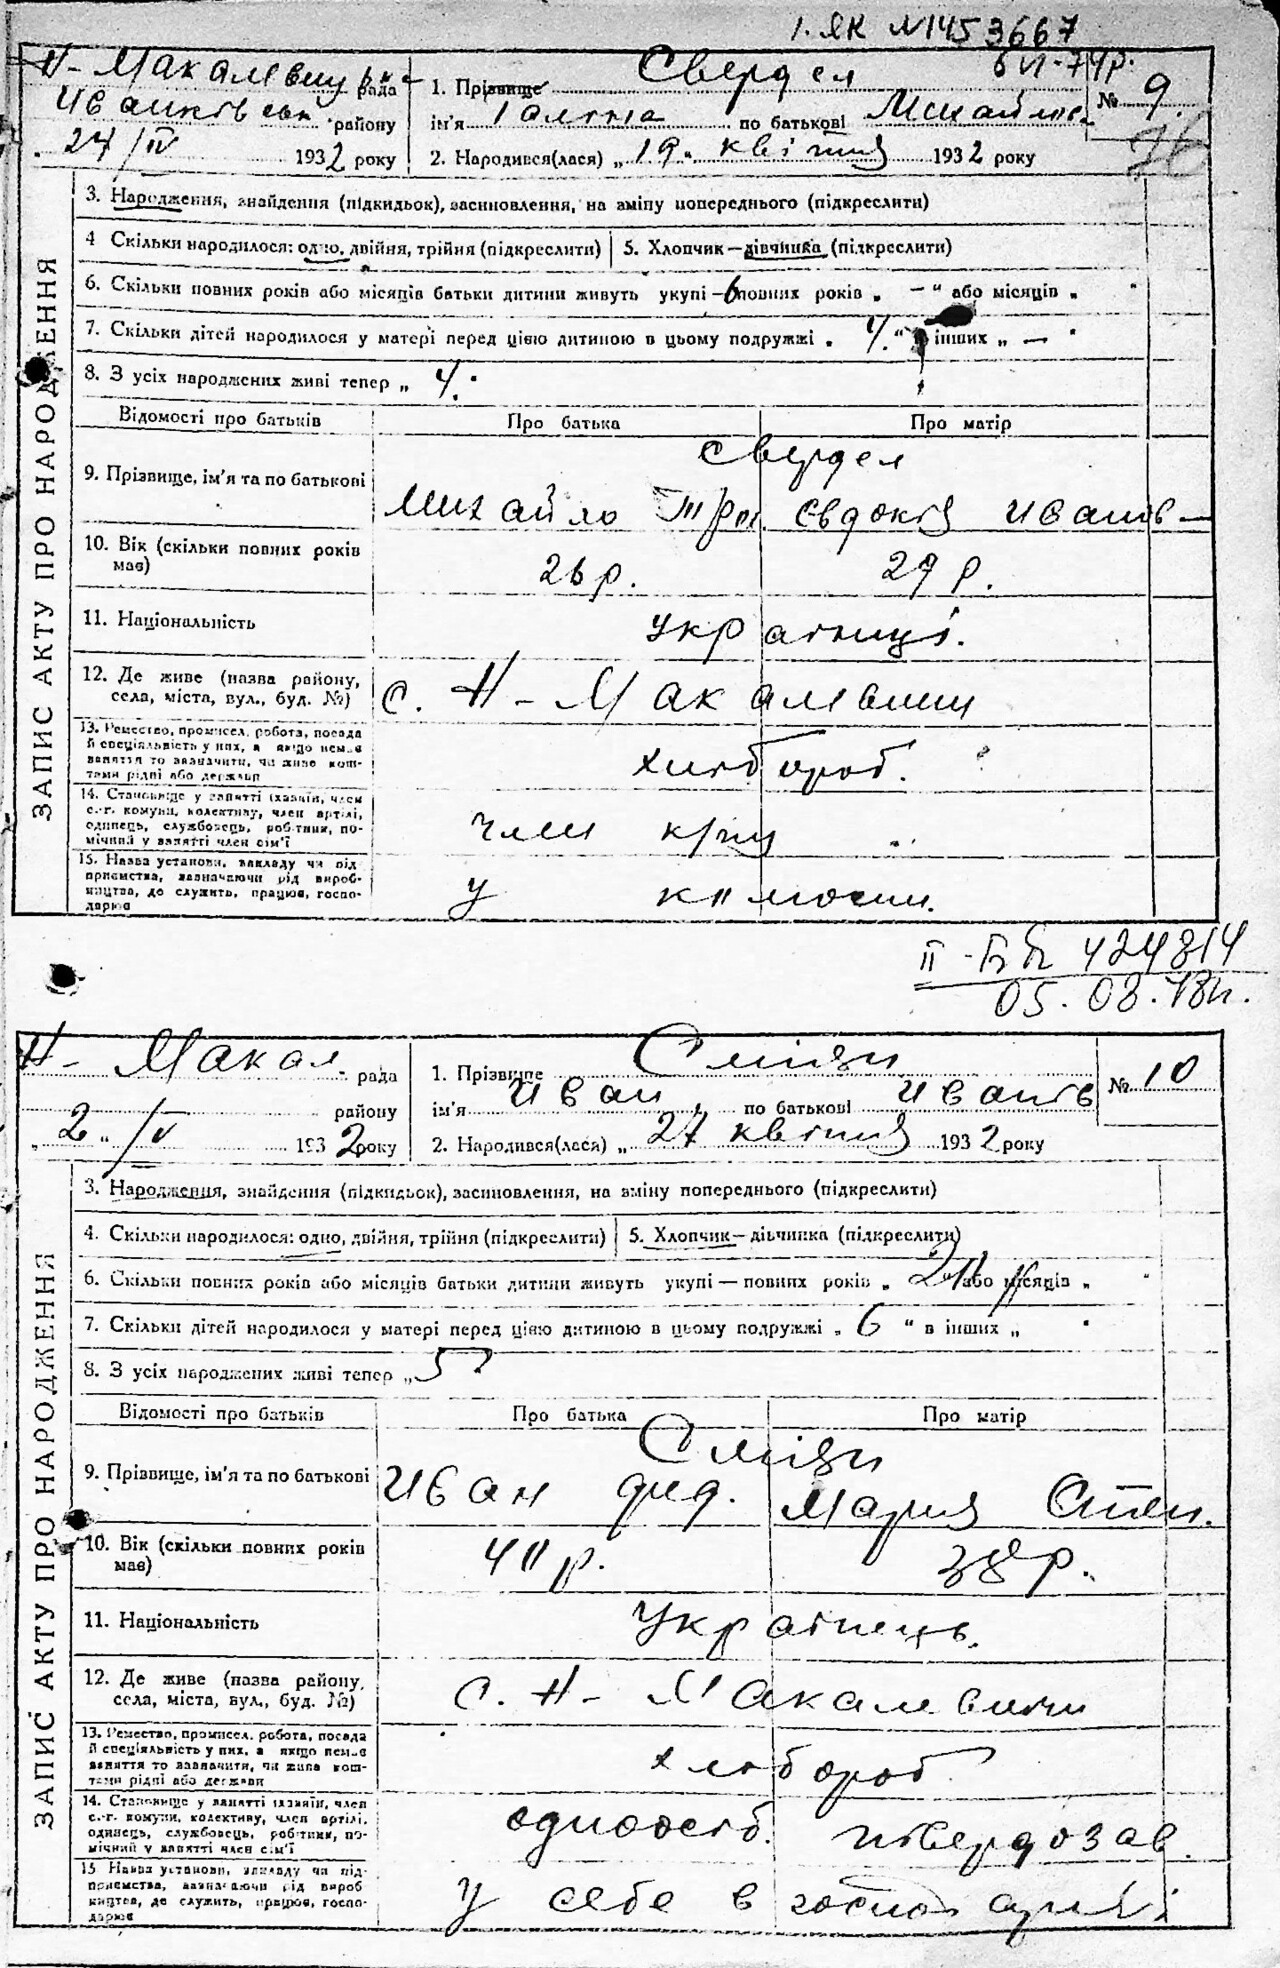 1. ЯК №1453667
6 VI-74р.
Н-Макалевицька рада
Іванківськ району
24/IV 1932 року
1. Прізвище Свердел
ім'я Галина по батькові Михайлів.
№ 9.
76
2. Народився(лася) „19" квітня 1932 року
ЗАПИС АКТУ ПРО НАРОДЖЕННЯ
3. Народження, знайдення (підкидьок), засиновлення, на зміну попереднього (підкреслити)
4 Скільки народилося: одно, двійня, трійня (підкреслити)
5. Хлопчик—дівчинка (підкреслити)
6. Скільки повних років або місяців батьки дитини живуть укупі—6 повних років „ —" або місяців „ "
7. Скільки дітей народилося у матері перед цією дитиною в цьому подружжі „ 4." в інших „ — "
8. З усіх народжених живі тепер „ 4."
Відомості про батьків
Про батька
Про матір
9. Прізвище, ім'я та по батькові
Свердел
Михайло Євдокія Иванів—
10. Вік (скільки повних років має)
26р. 29 р.
11. Національність
українці.
12. Де живе (назва району, села, міста, вул., буд. №)
с. Н-Макалевичи
13. Ремество, промисел, робота, посада й спеціяльність у них, а якщо немає заняття то зазначити, чи живе коштами рідні або держави
хлібороб.
14. Становище у занятті (хазяїн, член с.-г. комуни, колективу, член артілі, одинець, службовець, робітник, помічний у занятті член сім'ї
член
15. Назва установи, закладу чи підприємства, зазначаючи рід виробництва, де служить, працює, господарює
у
II-БК 424814
05.08.
Н- Макал рада
району
„2"/V 1932 року
1. Прізвище
ім'я Иван по батькові Иванів
№ 10
2. Народився(лася) „ 27 квітня 1932 року
ЗАПИС АКТУ ПРО НАРОДЖЕННЯ
3. Народження, знайдення (підкидьок), засиновлення, на зміну попереднього (підкреслити)
4. Скільки народилося: одно, двійня, трійня (підкреслити)
5. Хлопчик—дівчинка (підкреслити)
6. Скільки повних років або місяців батьки дитини живуть укупі — повних років „ або місяців „ "
7. Скільки дітей народилося у матері перед цією дитиною в цьому подружжі „ 6 " в інших „ "
8. З усіх народжених живі тепер „ 5"
Відомості про батьків
Про батька
Про матір
9. Прізвище, ім'я та по батькові
Иван Мария Степ.
10. Вік (скільки повних років має)
40р. 38р.
11. Національність
Українець.
12. Де живе (назва району, села, міста, вул., буд. №)
с. Н- Макалевичи
13. Ремество, промисел, робота, посада й спеціяльність у них, а якщо немає заняття то зазначити, чи жива коштами рідні або держави
хлібороб
14. Становище у занятті (хазяїн, член с.-г. комуни, колективу, член артілі, одинець, службовець, робітник, помічний у занятті член сім'ї
одноосіб. твердозав.
15 Назва установи, закладу чи підприємства, зазначаючи рід виробництва, де служить, працює, господарює
у себе в господарстві